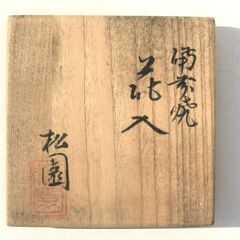 備前焼
花入
松園